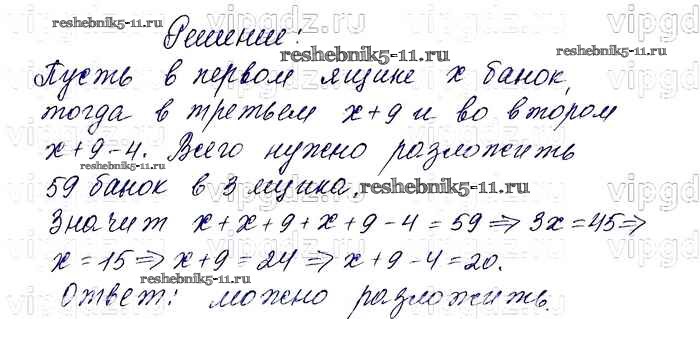 Решение:
Пусть в первом ящике x банок,
тогда в третьем x+9 и во втором
x+9-4. Всего нужно разложить
59 банок в 3 ящика.
Значит x+x+9+x+9-4=59 ⇒ 3x=45 ⇒
x=15 ⇒ x+9=24 ⇒ x+9-4=20.
Ответ: можно разложить.
reshebnik5-11.ru
reshebnik5-11.ru
reshebnik5-11.ru
reshebnik5-11.ru
reshebnik5-11.ru
reshebnik5-11.ru